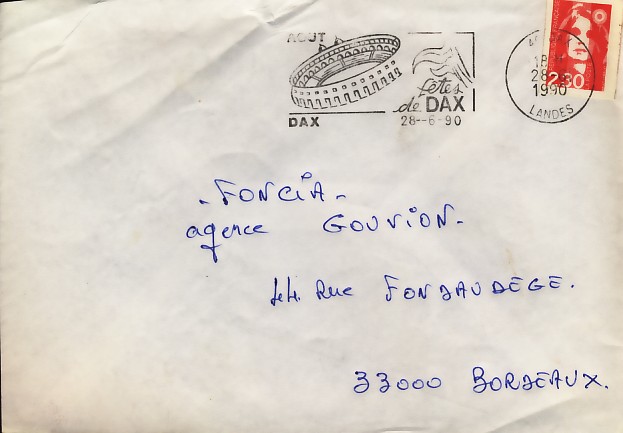 AOUT
fêtes
de DAX
DAX
28--6-90
18H
28-6
1990
LANDES
2,30
- FONCIA -
agence GOUVION -
44 Rue FONDAUDEGE.
33000 BORDEAUX.